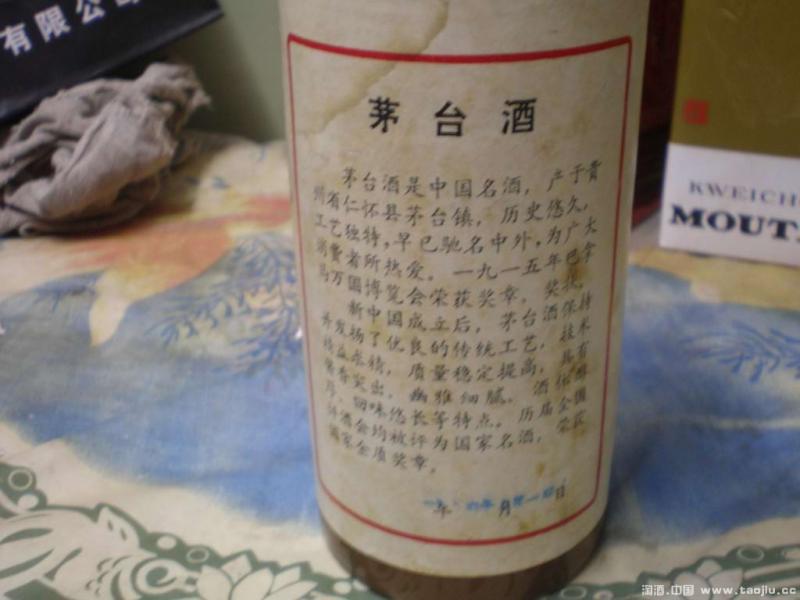 有限公司
茅台酒
茅台酒是中国名酒，产于贵
州省仁怀县茅台镇，历史悠久，
工艺独特，早已驰名中外，为广大
消费者所热爱。一九一五年巴拿
马万国博览会荣获奖章、奖状。
新中国成立后，茅台酒保持
并发扬了优良的传统工艺，技术
精益求精，质量稳定提高，具有
酱香突出、幽雅细腻、酒体醇
厚、回味悠长等特点。历届全国
评酒会均被评为国家名酒，荣获
国家金质奖章。
年 月 日
KWEICH
MOUT
淘酒.中国 www.taojiu.cc